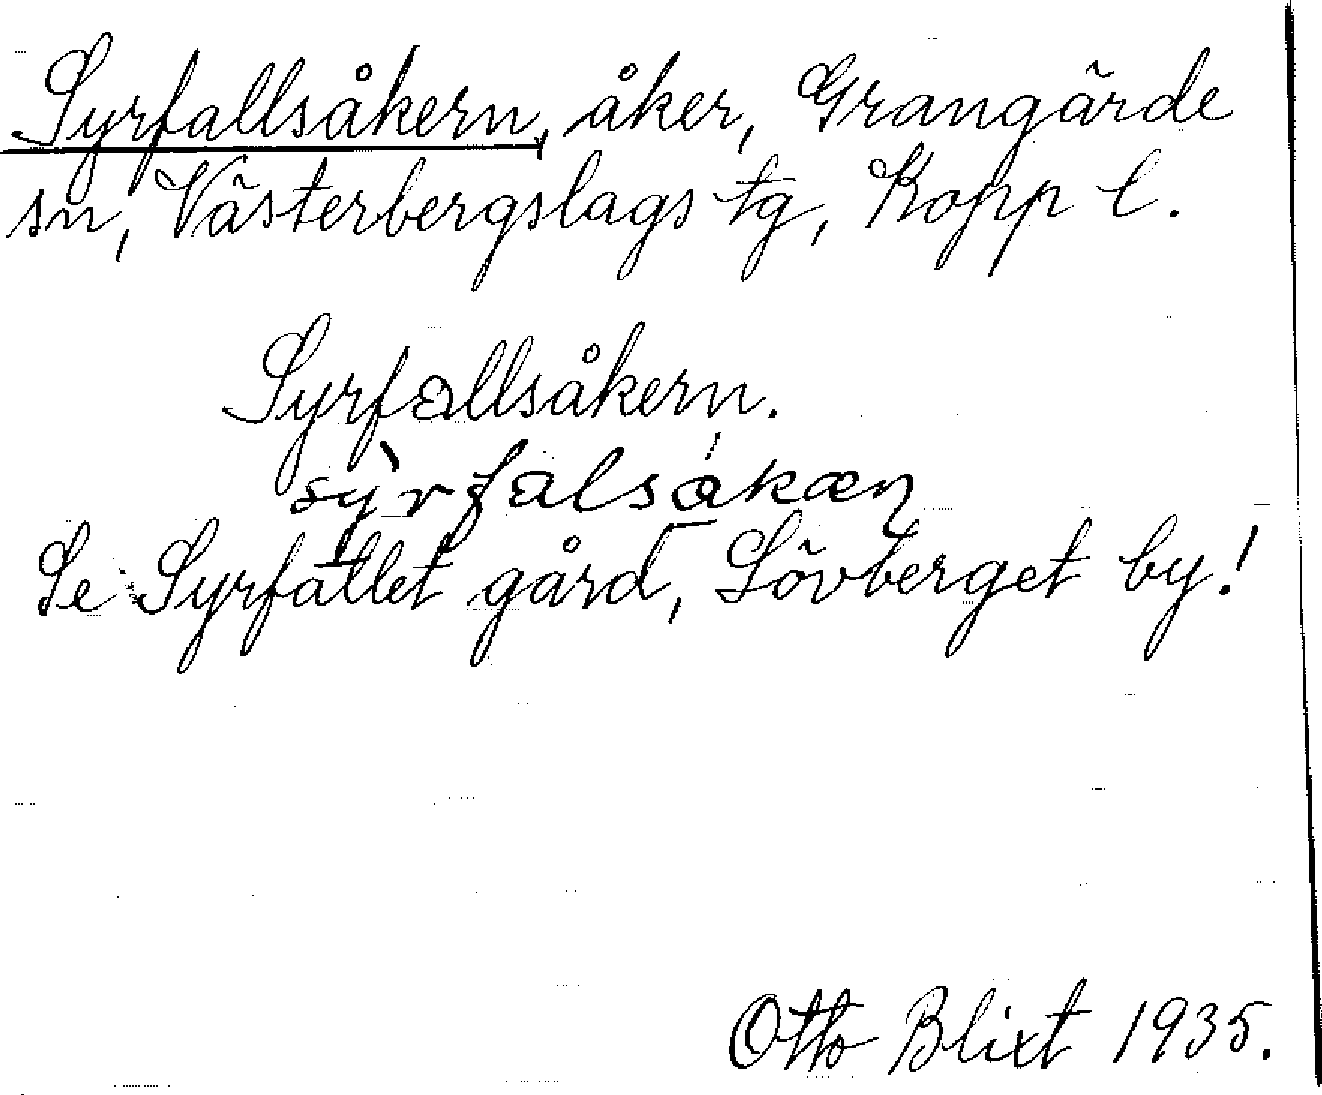 Syrfallsåkern, åker, Grangärde
sn, Västerbergslags tg, Kopp l.
Syrfallsåkern.
sỳrfalsåkæn
Se Syrfallet gård, Lövberget by!
Otto Blixt 1935.